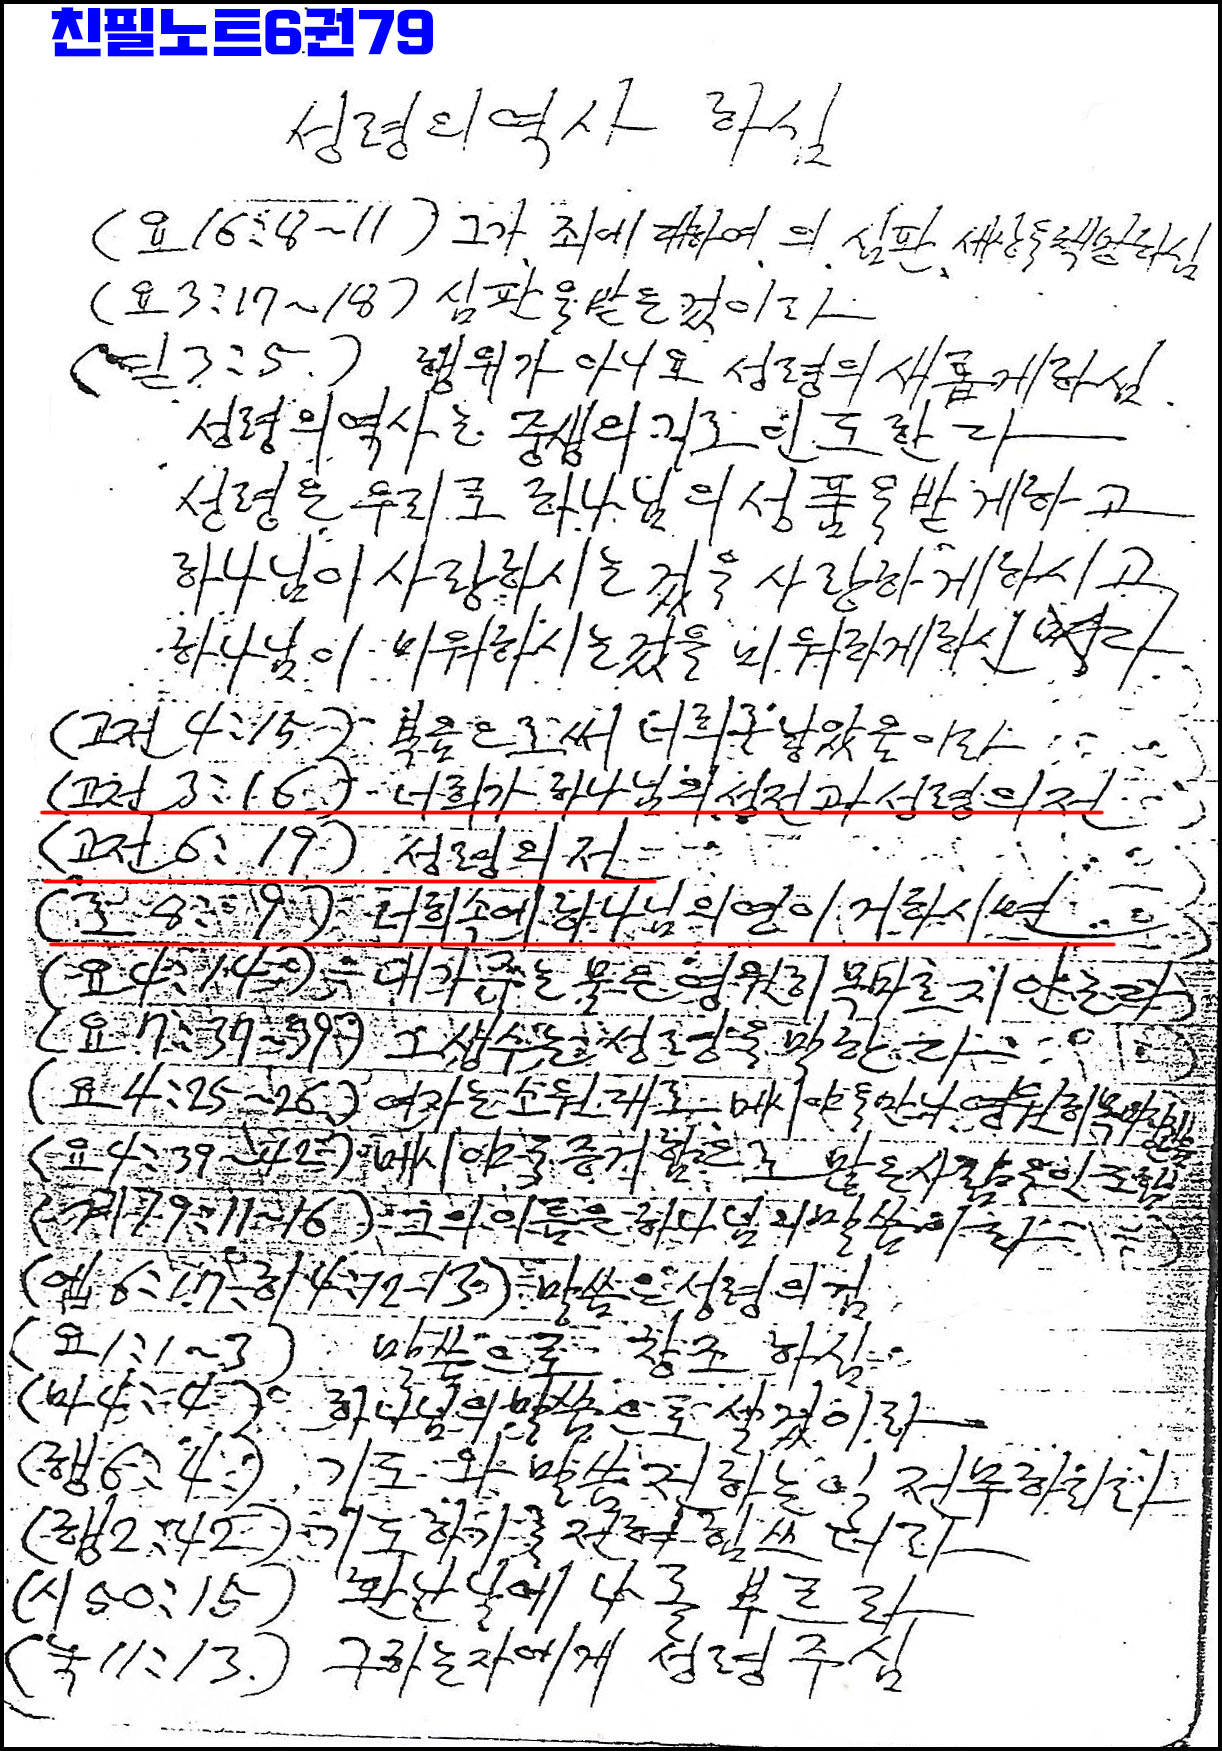 친필노트6권79
성령의역사 하심
(요16:8~11) 그가 죄에대하여 의 심판, 세상
(요3:17~18) 심판을받은것이라
(딛3:5.) 행위가 아니요 성령의새롭게하심.
성령의역사는 중생의 길로 인도한다
성령은 우리로 하나님의성품을받게하고
하나님이 사랑하시는것을 사랑하게하시고
하나님이 미워하시는것을 미워하게하신다
(고전4:15) 복음으로써 너희를낳았음이라
(고전3:16) 너희가 하나님의성전과 성령의전
(고전6:19) 성령의전
(롬8:9) 너희속에하나님의영이 거하시면
(요4:14) 내가주는물은영원히목마르지안는다
(요7:37~39) 그생수는성령을말한다
(요4:25~26) 여자는소원대로 메시야를만나 영원히
(요4:39~42) 메시야를증거함으로 많은사람을인도함
(계19:11~16) 그의이름은하나님의말씀이라
(엡6:17 히4:12-13) 말씀은성령의검
(요1:1~3) 말씀으로 창조하심
(마4:4) 하나님의말씀으로살것이라
(행6:4) 기도와말씀전하는일 전무하리라
(행2:42) 기도하기를전혀힘쓰니라
(시50:15) 환난날에 나를 부르라
(눅11:13.) 구하는자에게 성령주심